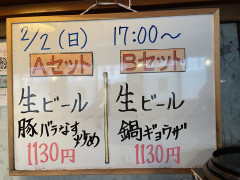 2/2(日) 17:00～
Aセット
生ビール
豚バラなす炒め
1130円
Bセット
生ビール
鍋ギョウザ
1130円